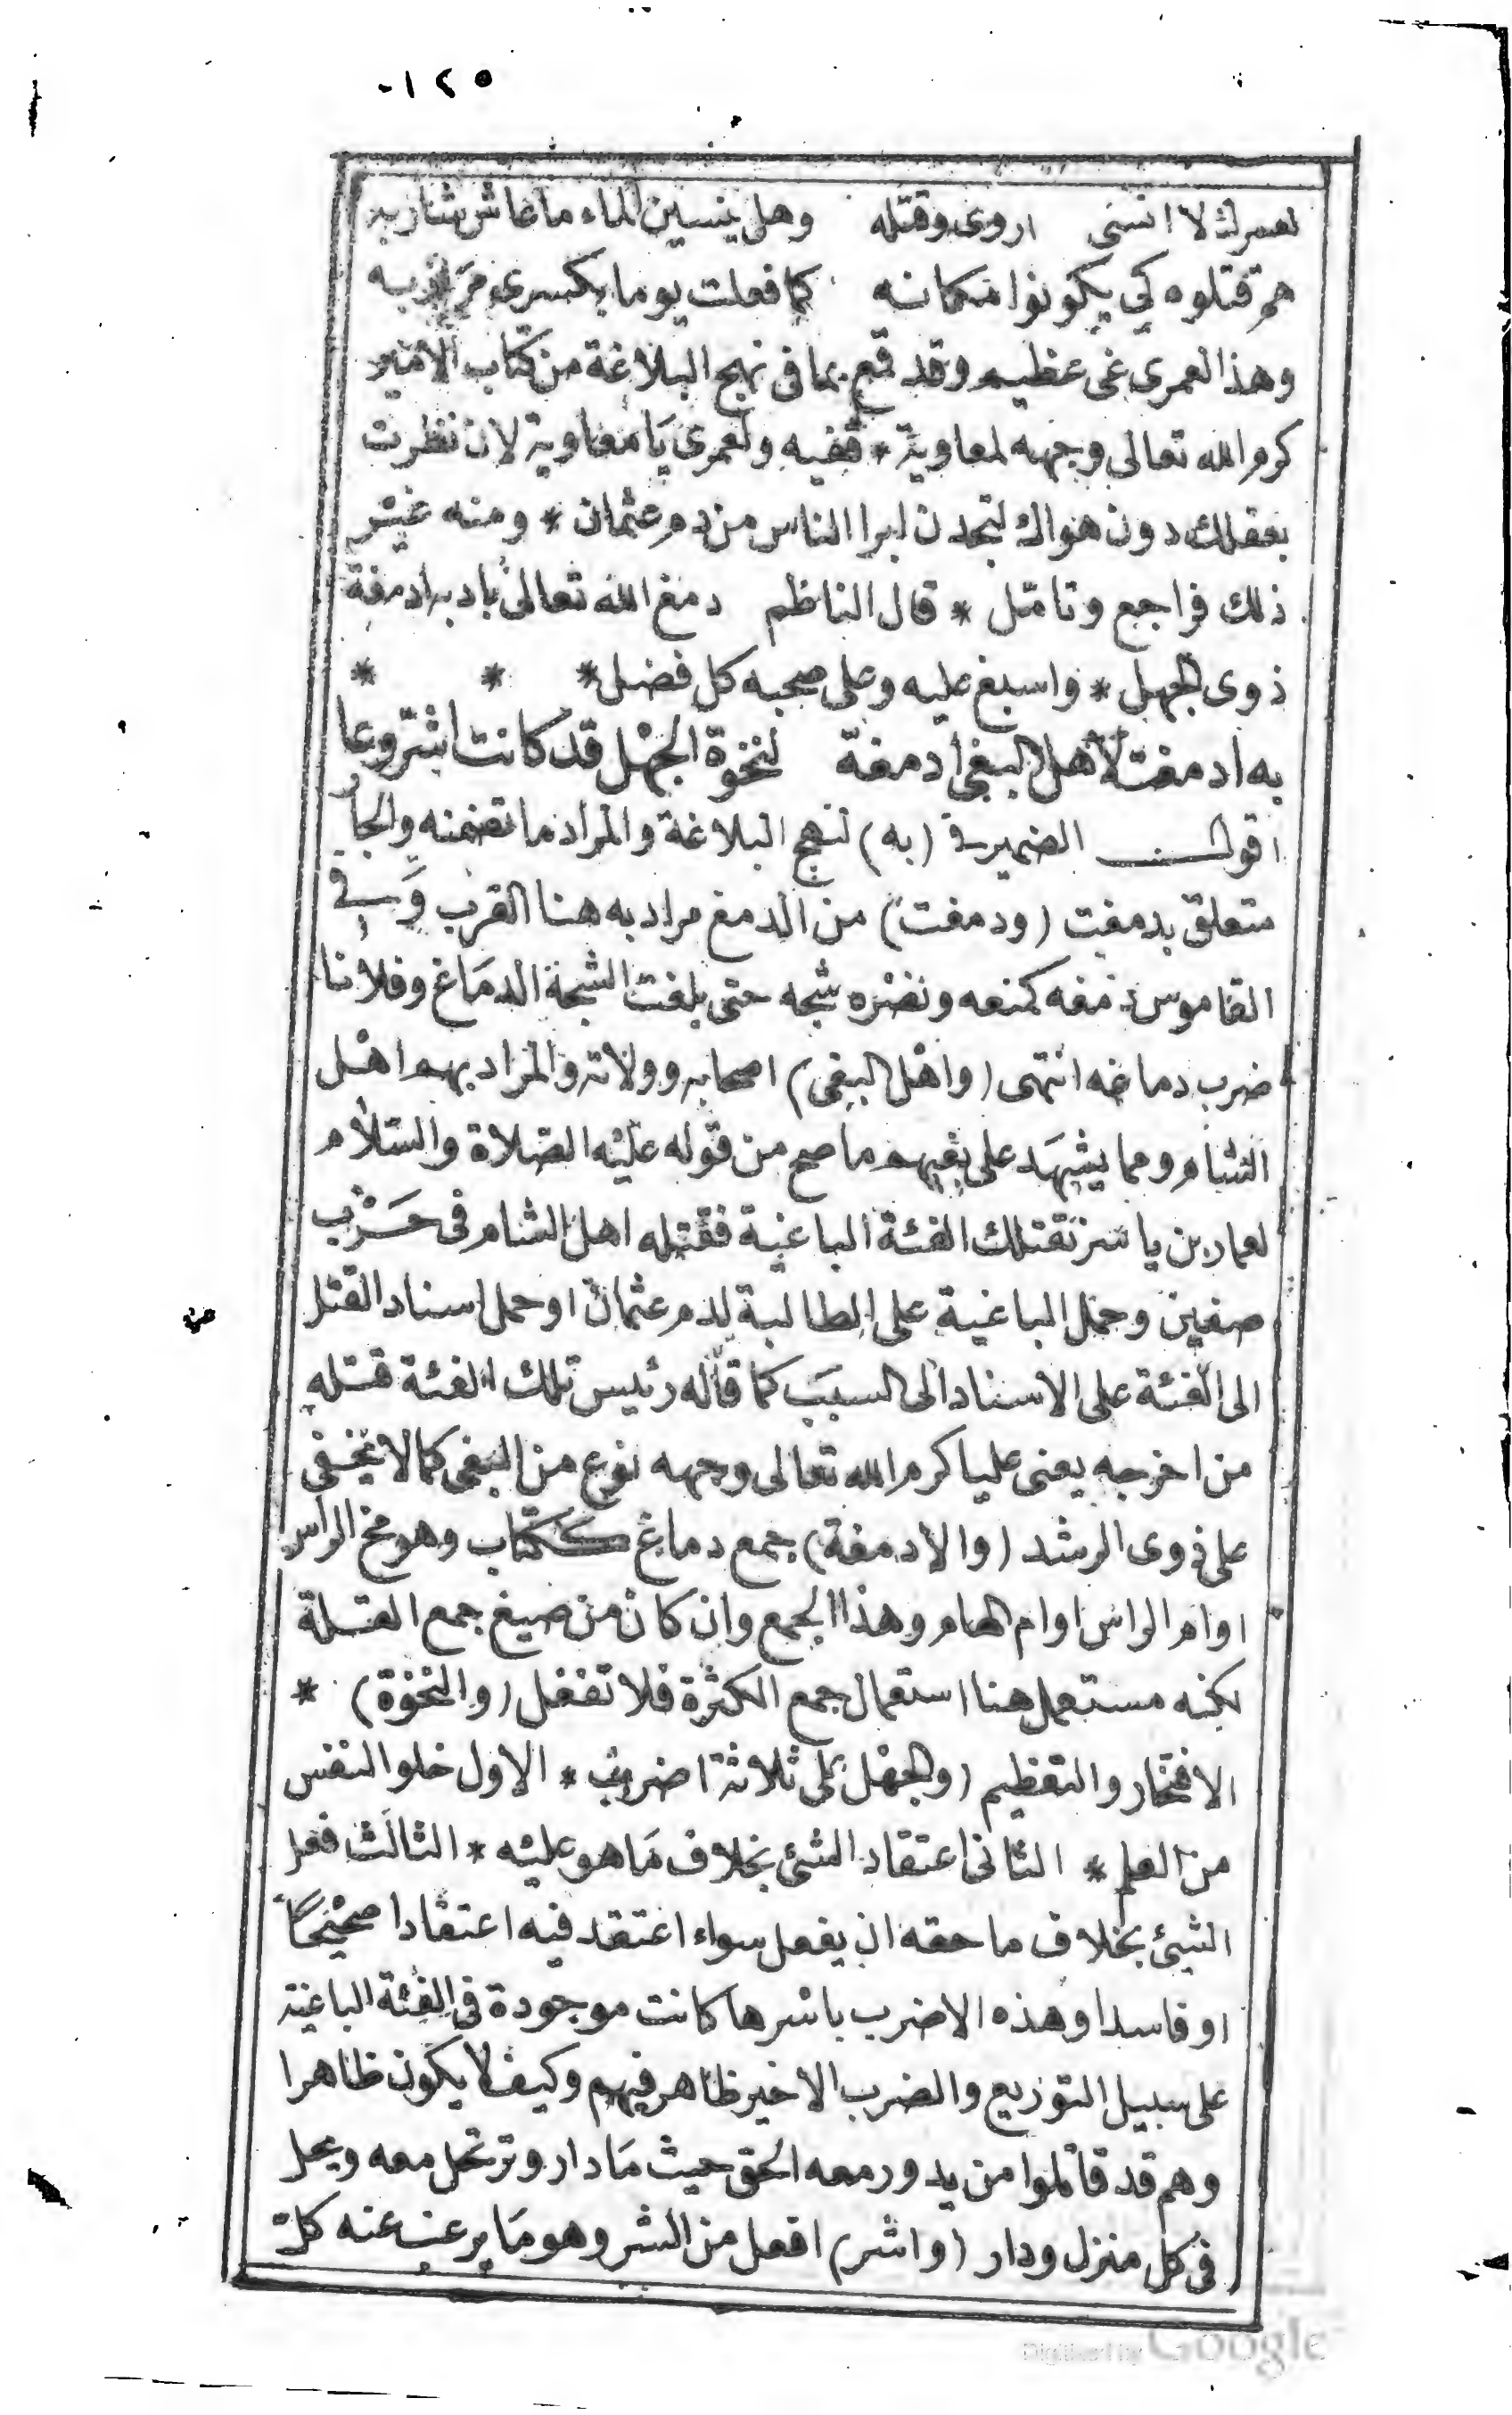 ١٢٥
لعمرك لا انسى اروى وقتله وهل ينسين الماء ما عاش شاربه
هم قتلوه كي يكونوا مكانه كما فعلت يوما بكسرى مرازبه
وهذا لعمرى غى عظيم وقد قمع بما فى نهج البلاغة من كتاب الامير
كرم الله تعالى وجهه لمعاوية * ففيه ولعمرى يا معاوية لان نظرت
بعقلك دون هواك لتجدن ابرا الناس من دم عثمان * ومنه غير
ذلك فراجع وتامل * قال الناظم دمغ الله تعالى بادبه ادمغة
ذوى الجهل * واسبغ عليه وعلى صحبه كل فضل * * *
به ادمغت لاهل البغى ادمغة لنخوة الجهل قد كانت اشر وعا
اقول الضمير فى (به) لنهج البلاغة والمراد ما تضمنه والجار
متعلق بدمغت (ودمغت) من الدمغ مراد به هنا القرب وفى
القاموس دمغه كمنعه ونصره شجه حتى بلغت الشجة الدماغ وفلانا
ضرب دماغه انتهى (واهل البغى) اصحابه وولاته والمراد بهم اهل
الشام ومما يشهد على بغيهم ما صح من قوله عليه الصلاة والسلام
لعمار بن ياسر تقتلك الفئة الباغية فقتله اهل الشام فى حرب
صفين وحمل الباغية على الطالبة لدم عثمان او حمل اسناد القتل
الى الفئة على الاسناد الى السبب كما قاله رئيس تلك الفئة قتله
من اخرجه يعنى عليا كرم الله تعالى وجهه نوع من البغى كما لا يخفى
على ذوى الرشد (والادمغة) جمع دماغ ككتاب وهو مخ الراس
او ام الراس او ام الهام وهذا الجمع وان كان من صيغ جمع القلة
لكنه مستعمل هنا استعمال جمع الكثرة فلا تغفل (والنخوة) *
الافتخار والتعظيم (والجهل على ثلاثة اضرب * الاول خلو النفس
من العلم * الثانى اعتقاد الشئ بخلاف ما هو عليه * الثالث فعل
الشئ بخلاف ما حقه ان يفعل سواء اعتقد فيه اعتقادا صحيحا
او فاسدا وهذه الاضرب باسرها كانت موجودة فى الفئة الباغية
على سبيل التوزيع والضرب الاخير ظاهر فيهم وكيف لا يكون ظاهرا
وهم قد قاتلوا من يدور معه الحق حيث ما دار وترتحل معه ويحل
فى كل منزل ودار (واشر) افعل من الشر وهو ما يرغب عنه كل
Digitized by Google